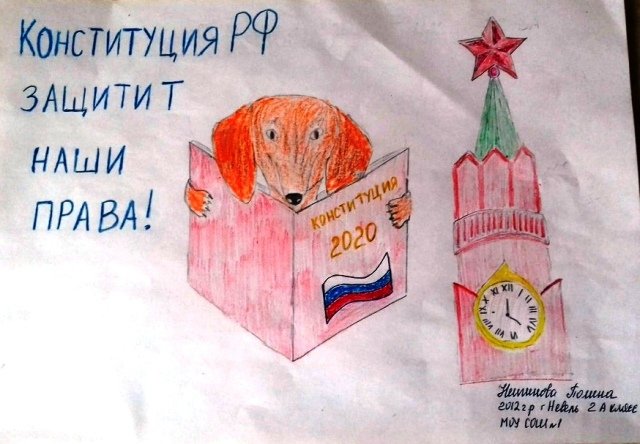 КОНСТИТУЦИЯ РФ
ЗАЩИТИТ
НАШИ
ПРАВА!
КОНСТИТУЦИЯ
2020
XII
Полина
2012 г р г Невель 2 А класс
МОУ СОШ №1